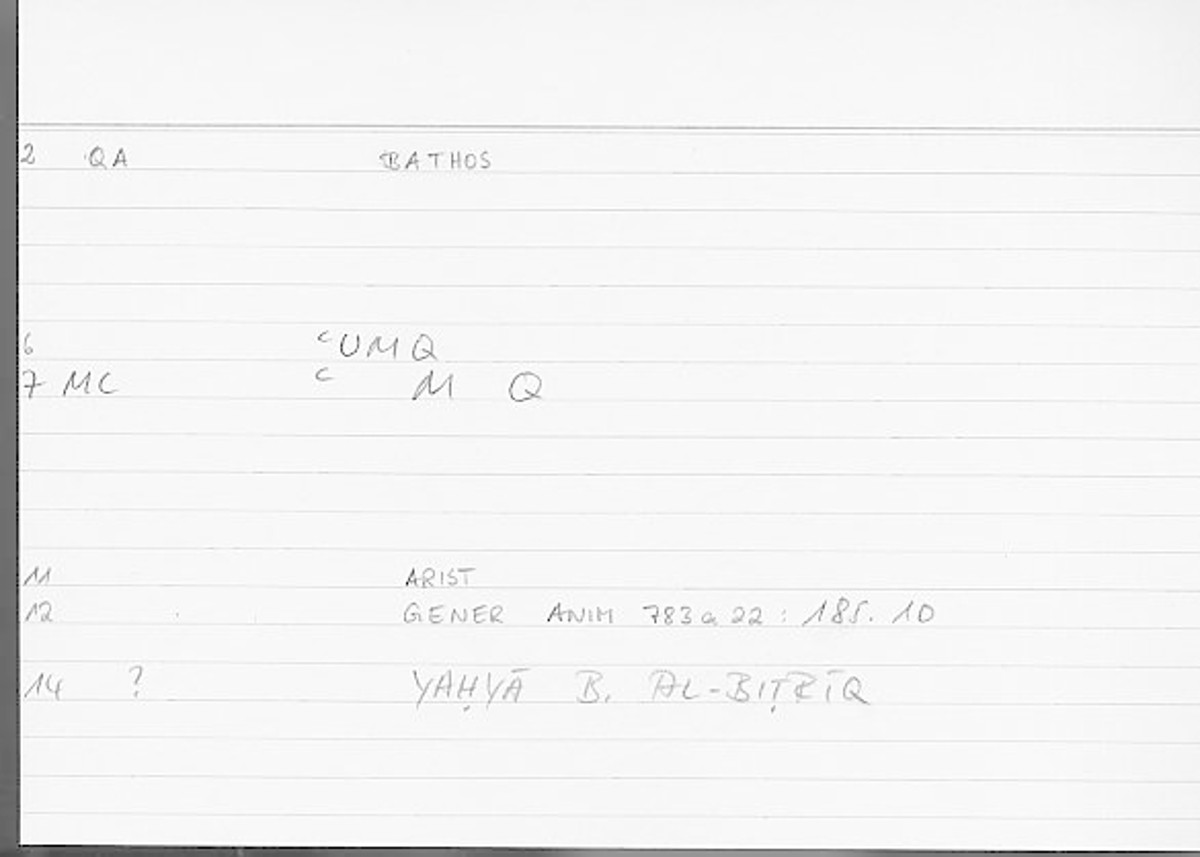 2 QA BATHOS
6 ᶜUMQ
7 MC ᶜ M Q
11 ARIST
12 GENER ANIM 783a22 : 185. 10
14 ? YAḤYĀ B. AL-BIṬRĪQ